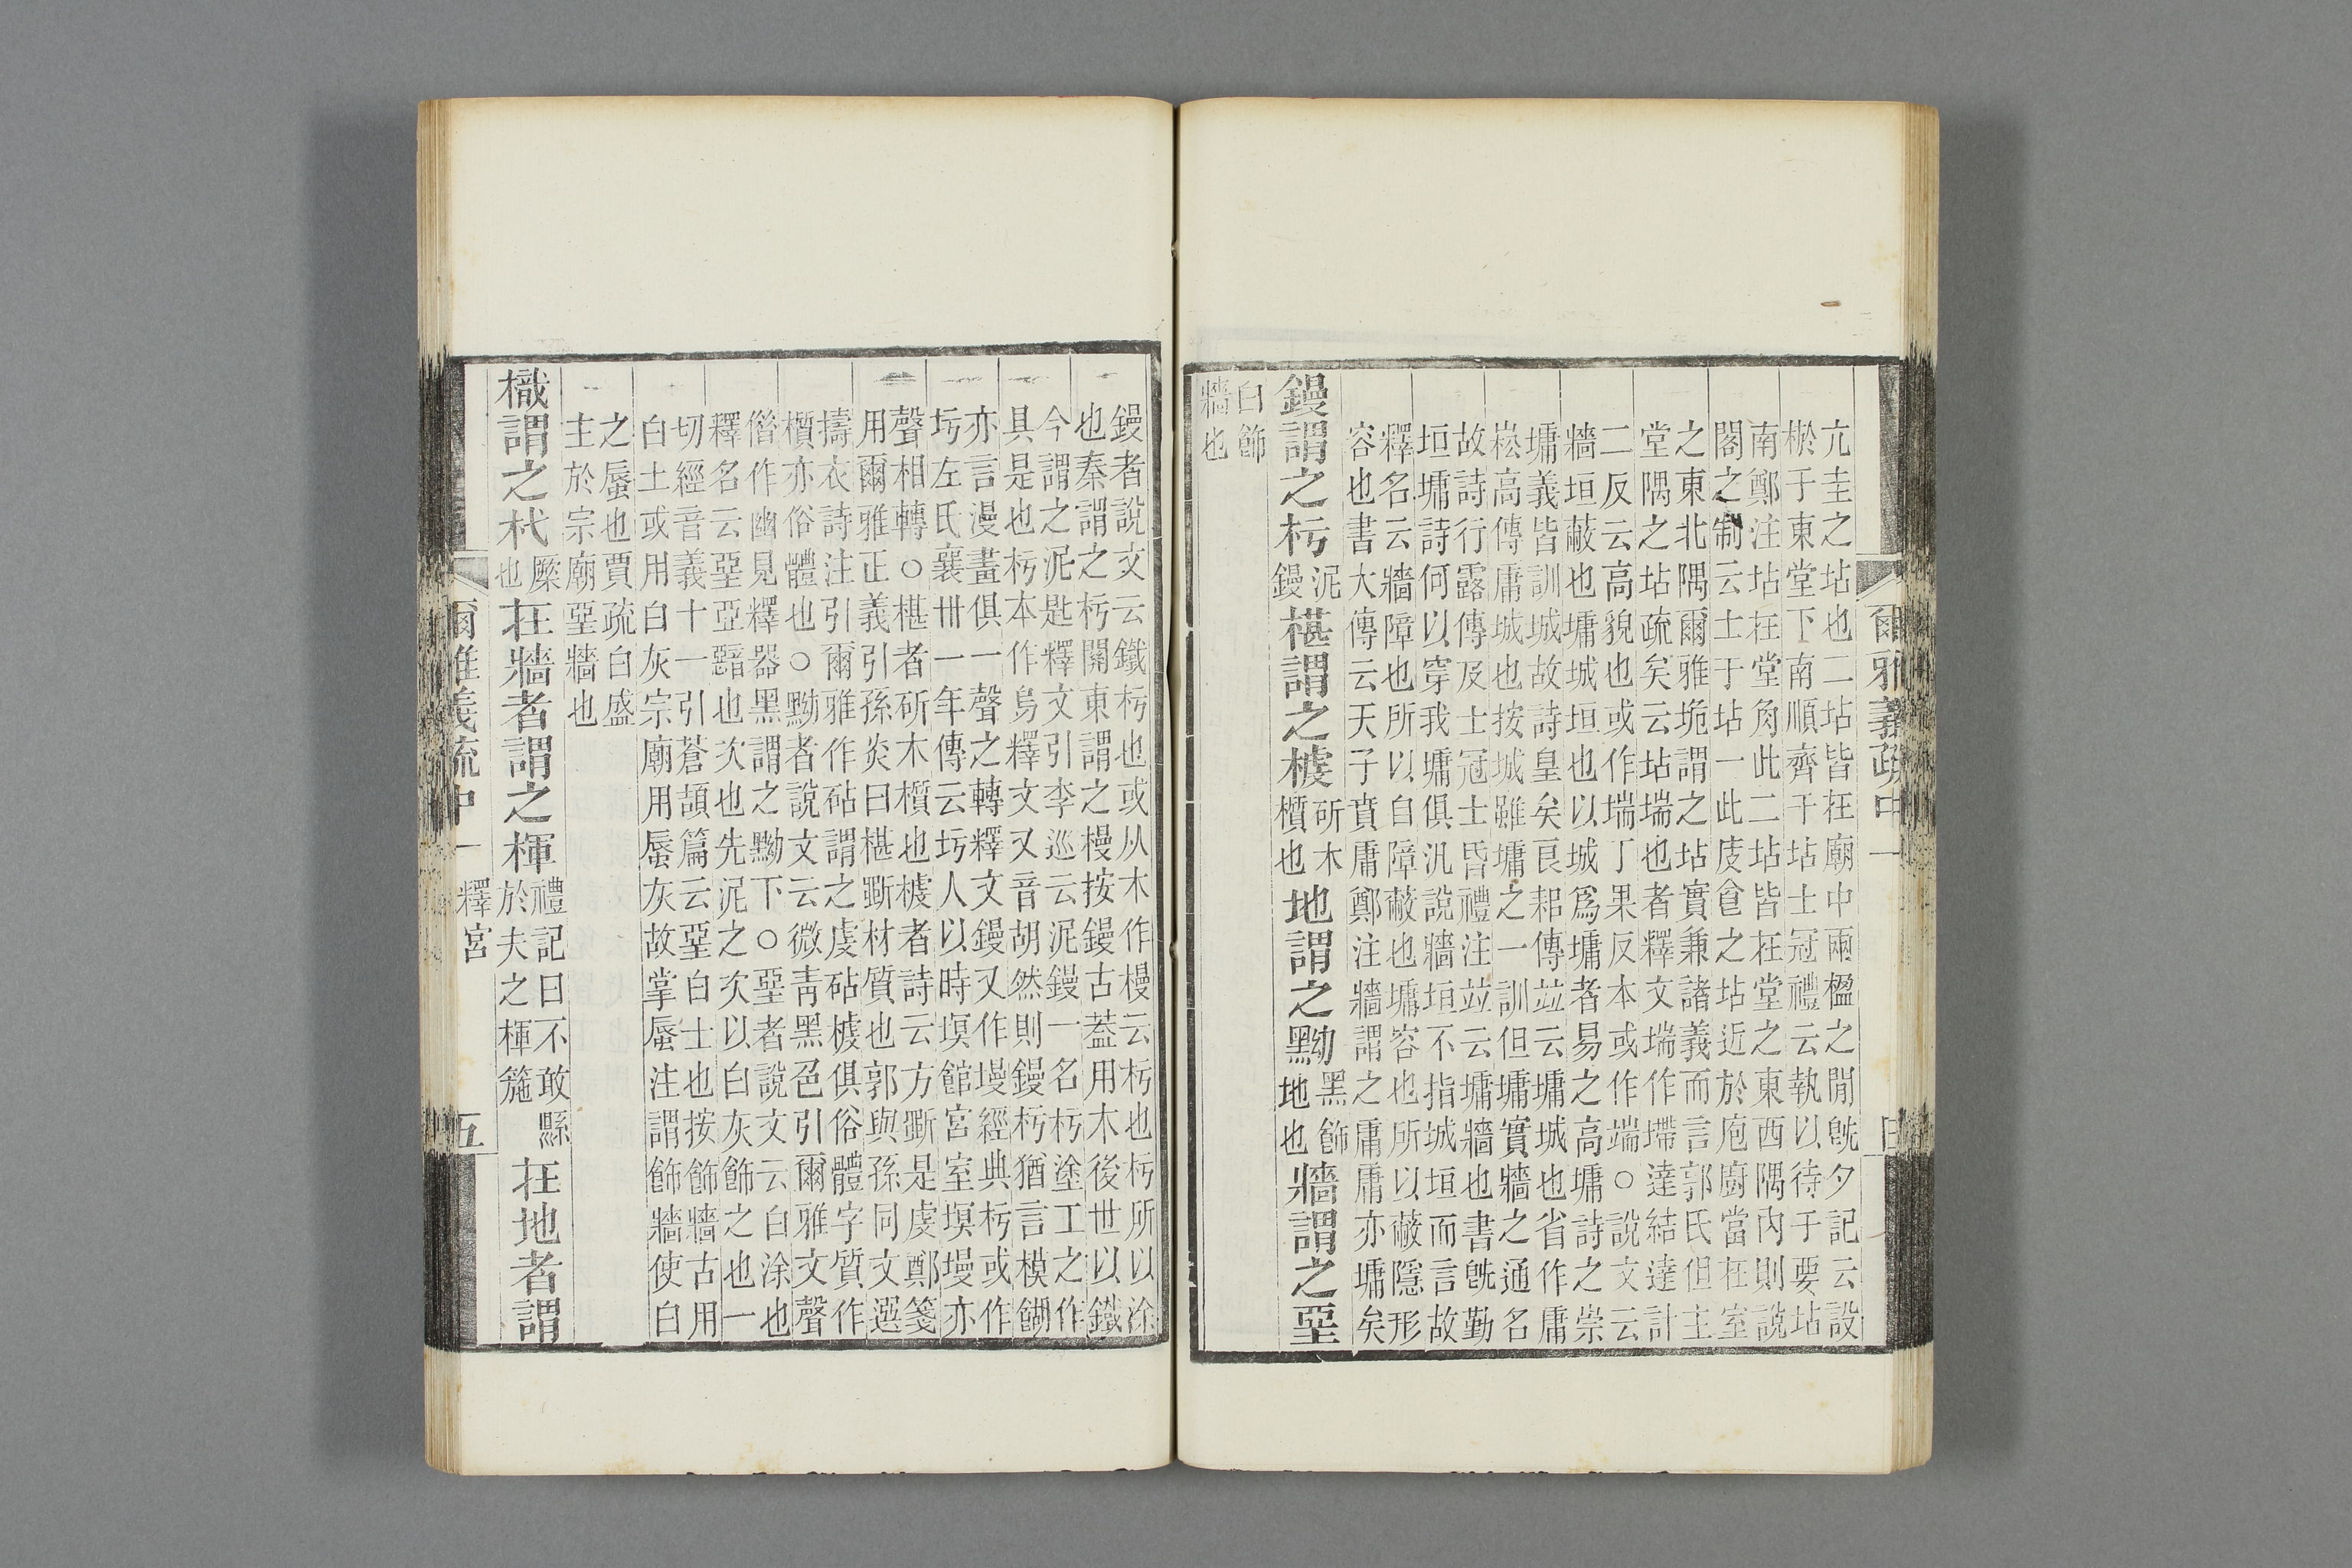 亢圭之坫也二坫皆在廟中兩楹之閒旣夕記云設
棜于東堂下南順齊于坫士冠禮云執以待于要坫
南鄭注坫在堂角此二坫皆在堂之東西隅內則說
閣之制云士于坫一此庋食之坫近於庖廚當在室
之東北隅爾雅垝謂之坫實兼諸義而言郭氏但主
堂隅之坫疏矣云坫端也者釋文端作墆達結達計
二反云高貌也或作端丁果反本或作端○說文云
牆垣蔽也墉城垣也以城爲墉者易之高墉詩之崇
墉義皆訓城故詩皇矣良耜傳竝云墉城也省作庸
崧高傳庸城也按城雖墉之一訓但墉實牆之通名
故詩行露傳及士冠士昏禮注竝云墉牆也書旣勤
垣墉詩何以穿我墉俱汎說牆垣不指城垣而言故
釋名云牆障也所以自障蔽也墉容也所以蔽隱形
容也書大傳云天子賁庸鄭注牆謂之庸庸亦墉矣
鏝謂之杇泥鏝椹謂之榩斫木櫍也地謂之黝黑飾地也牆謂之堊
白飾牆也
爾雅義疏中一
鏝者說文云鐵杇也或从木作槾云杇也杇所以涂
也秦謂之杇關東謂之槾按鏝古蓋用木後世以鐵
今謂之泥匙釋文引李巡云泥鏝一名杇塗工之作
具是也杇本作㐵釋文又音胡然則鏝杇猶言模餬
亦言漫畫俱一聲之轉釋文鏝又作墁經典杇或作
圬左氏襄卅一年傳云圬人以時塓館宮室塓墁亦
聲相轉○椹者斫木櫍也榩者詩云方斲是虔鄭箋
用爾雅正義引孫炎曰椹斲材質也郭與孫同文選
擣衣詩注引爾雅作砧謂之虔砧榩俱俗體字質作
櫍亦俗體也○黝者說文云微靑黑色引爾雅文聲
偕作幽見釋器黑謂之黝下○堊者說文云白涂也
釋名云堊亞䛩也次也先泥之次以白灰飾之也一
切經音義十一引蒼頡篇云堊白土也按飾牆古用
白土或用白灰宗廟用蜃灰故掌蜃注謂飾牆使白
之蜃也賈疏白盛
主於宗廟堊牆也
樴謂之杙橜也在牆者謂之楎禮記曰不敢縣於夫之楎箷在地者謂
爾雅義疏中一
釋宮
五